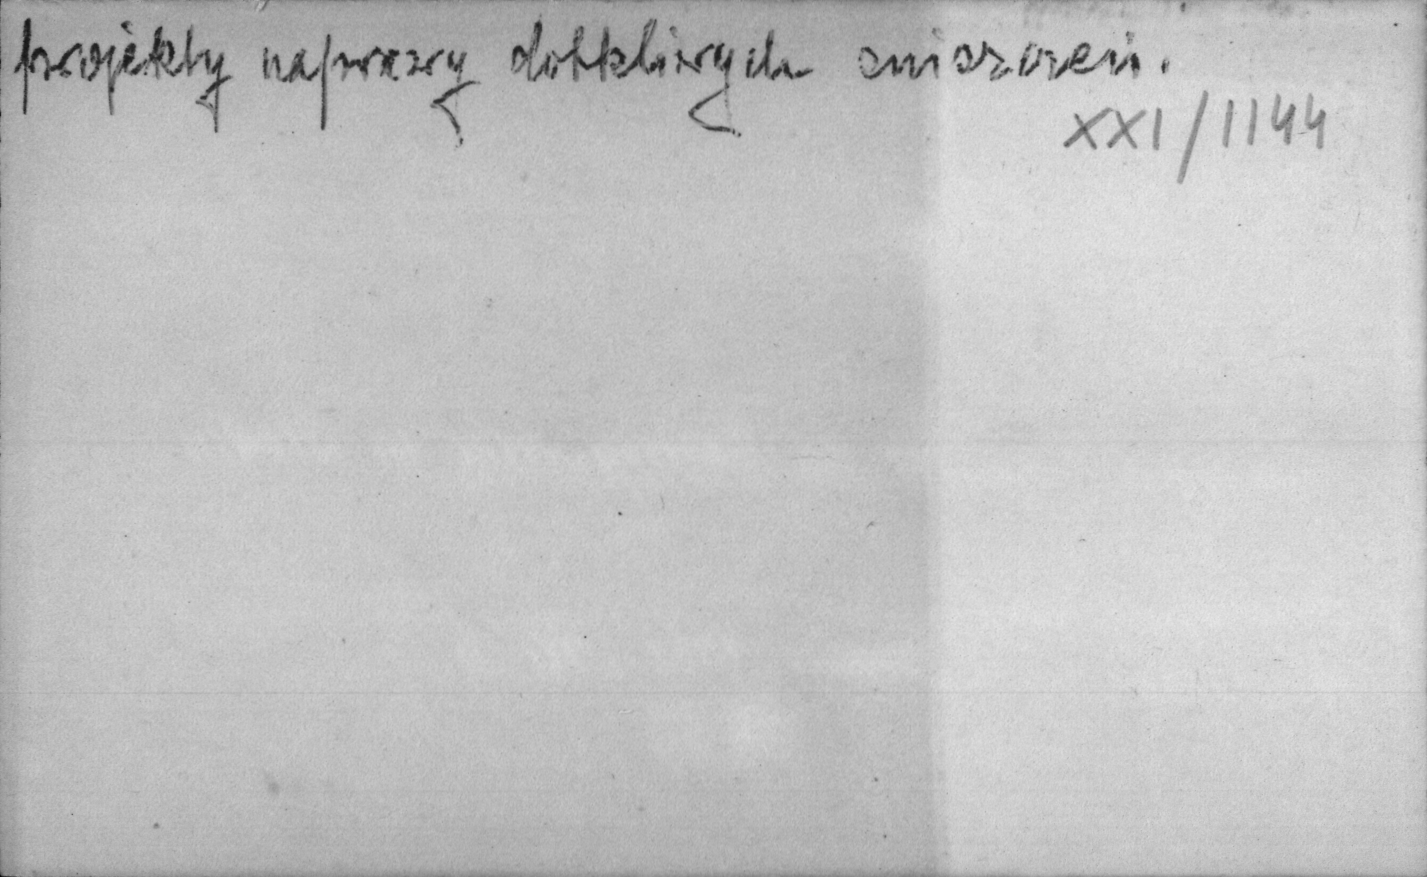 projekty naprawy dotkliwych zniszczeń.
XXI/1144